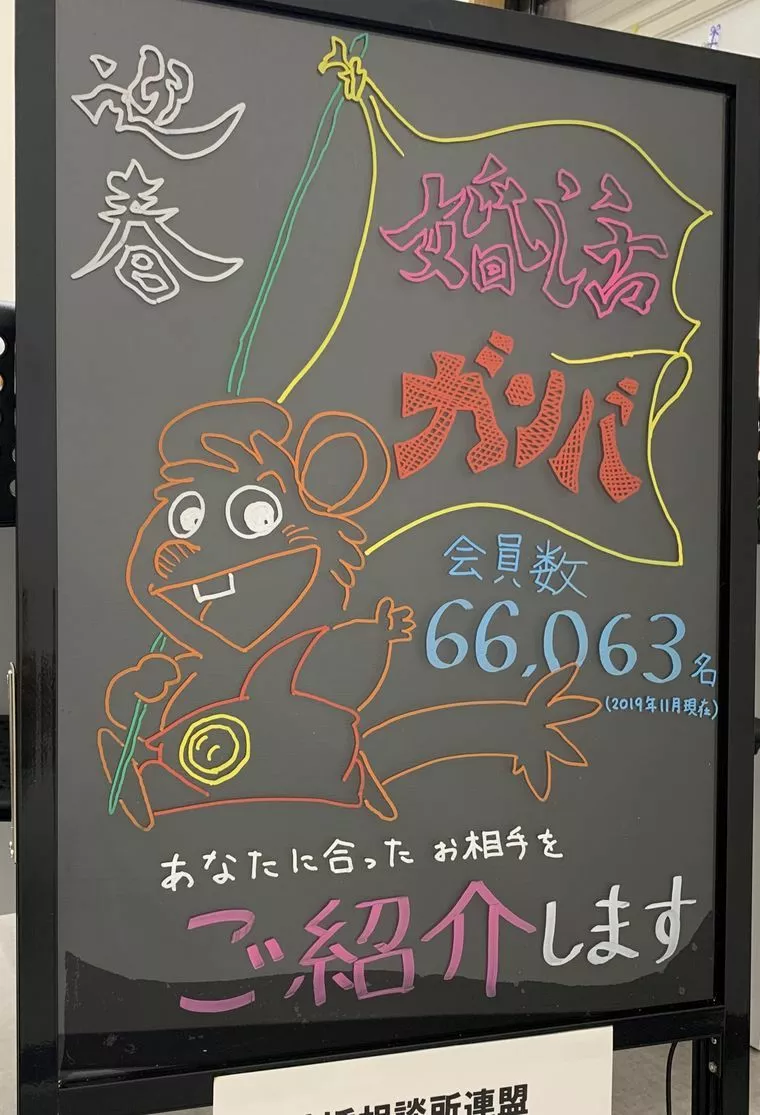 迎春
婚活
ガンバ
会員数
66,063名
(2019年11月現在)
あなたに合ったお相手を
ご紹介します
婚相談所連盟